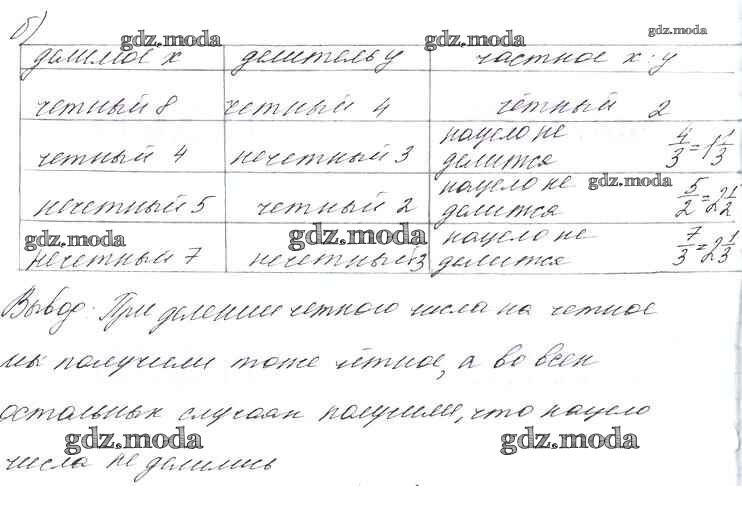 б)
gdz.moda gdz.moda gdz.moda
делимое x делитель y частное x : y
четный 8 четный 4 чётный 2
четный 4 нечетный 3 нацело не делится 4/3 = 1 1/3
нечетный 5 четный 2 нацело не делится 5/2 = 2 1/2
gdz.moda
gdz.moda gdz.moda
нечетный 7 нечетный 3 нацело не делится 7/3 = 2 1/3
Вывод: При делении четного числа на четное
мы получили тоже чётное, а во всех
остальных случаях получили, что нацело
gdz.moda gdz.moda
числа не делились